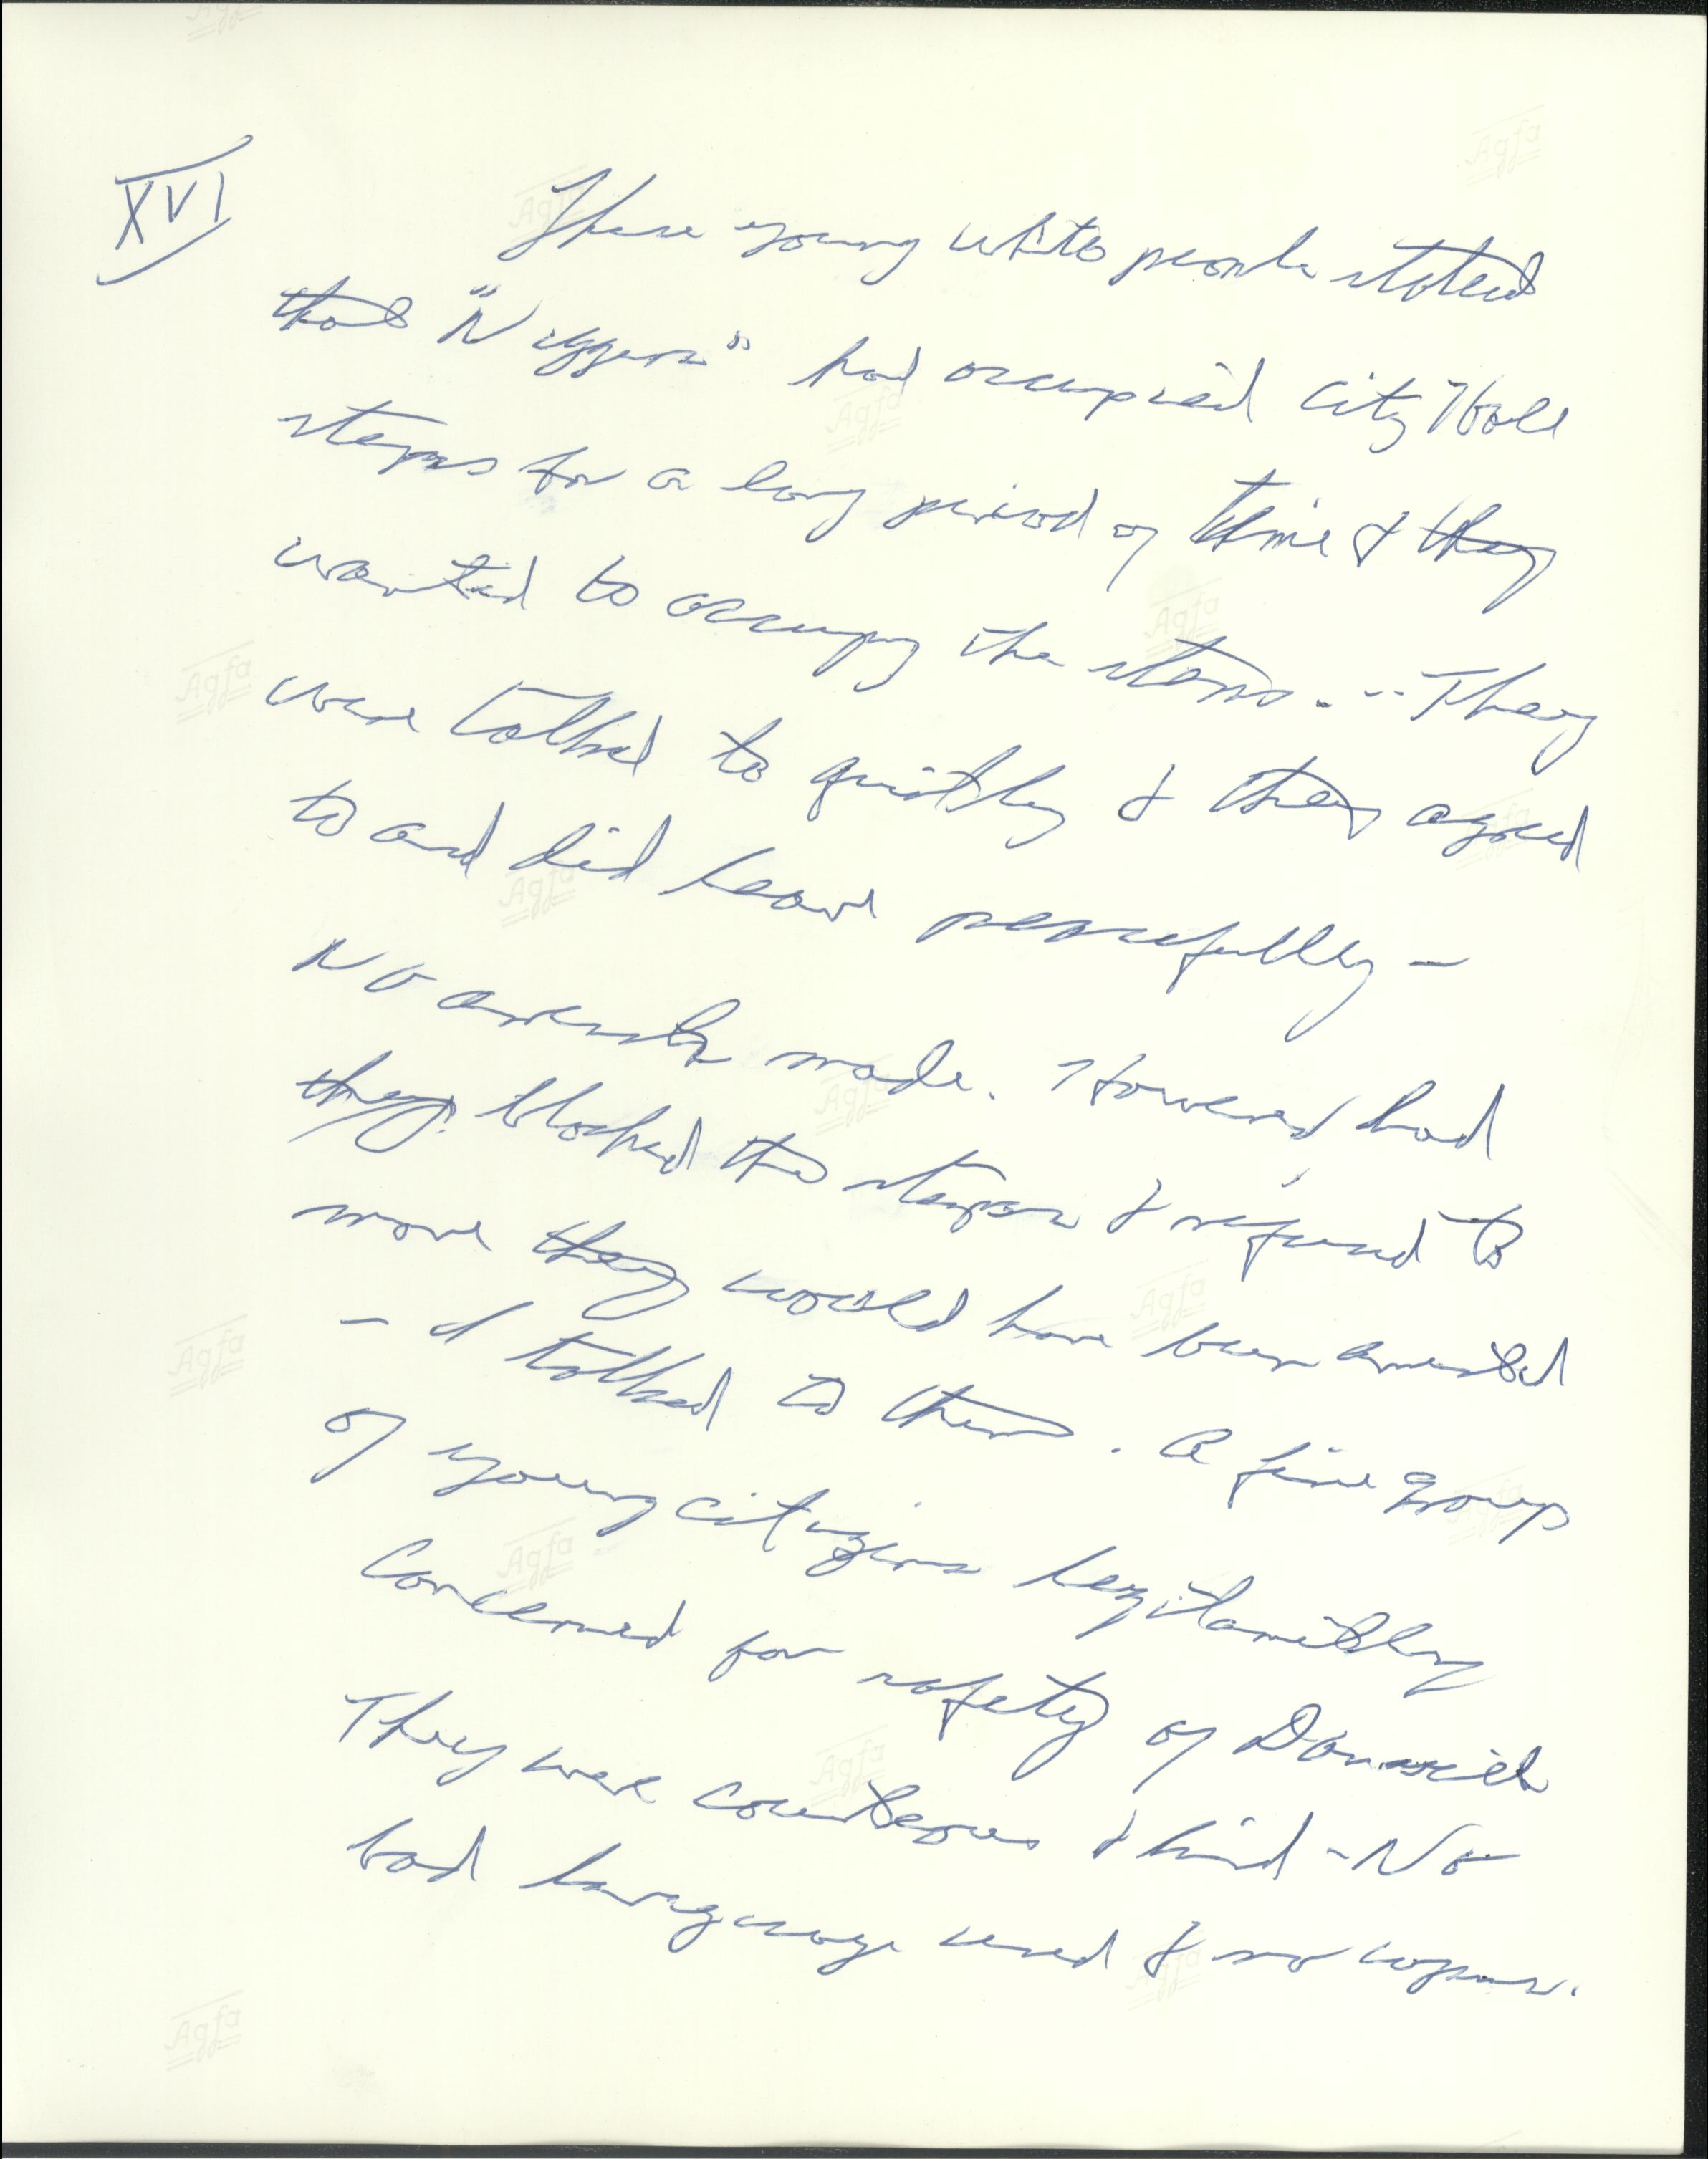 XVI
These young white people stated
that "Niggers" had occupied City Hall
steps for a long period of time & they
wanted to occupy the steps. -- They
were talked to quietly & they agreed
to and did leave peacefully -
No arrests made. However had
they blocked the steps & refused to
move they would have been arrested
- I talked to them. A fine group
of young citizens legitamitley
Concerned for safety of Danville
They were courteous & kind - No
bad language used & no